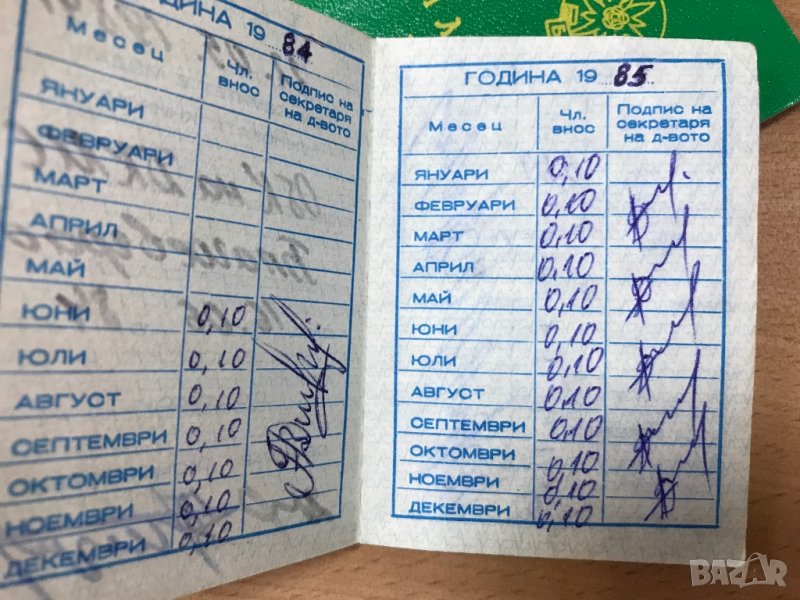 ГОДИНА 19 84
Месец Чл. внос Подпис на секретаря на д-вото
ЯНУАРИ
ФЕВРУАРИ
МАРТ
АПРИЛ
МАЙ
ЮНИ 0,10
ЮЛИ 0,10
АВГУСТ 0,10
СЕПТЕМВРИ 0,10
ОКТОМВРИ 0,10
НОЕМВРИ 0,10
ДЕКЕМВРИ 0,10
ГОДИНА 19 85
Месец Чл. внос Подпис на секретаря на д-вото
ЯНУАРИ 0,10
ФЕВРУАРИ 0,10
МАРТ 0,10
АПРИЛ 0,10
МАЙ 0,10
ЮНИ 0,10
ЮЛИ 0,10
АВГУСТ 0,10
СЕПТЕМВРИ 0,10
ОКТОМВРИ 0,10
НОЕМВРИ 0,10
ДЕКЕМВРИ 0,10
BAZAR